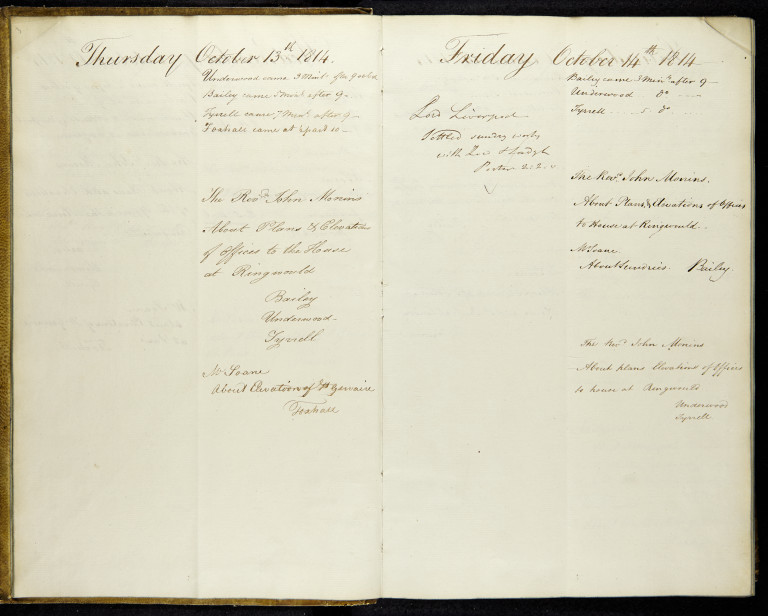 Thursday October 13th 1814.
Underwood came 3 Mints after 9
Bailey came 5 Mints after 9-
Tyrrell came 7 Mints after 9-
Foxhall came at ½ past 10-
The Revd. John Monins
About Plans & Elevations
of offices to the House
at Ringwould
Bailey
Underwood-
Tyrrell
Mr Soane
About Elevation of St Gervaise
Foxhall
Friday October 14th 1814
Bailey came 3 Mints after 9-
Underwood Do ...
Tyrrell ... 5 Do ...
Lord Liverpool
Settled sundry works
with
Porter 2..2..0
The Revd. John Monins.
About Plans & Elevations of Offices
to House at Ringwould.
Mr Soane.
About Sundries. Bailey
The Revd John Monins
About plans Elevations of Offices
to house at Ringwould
Underwood
Tyrrell